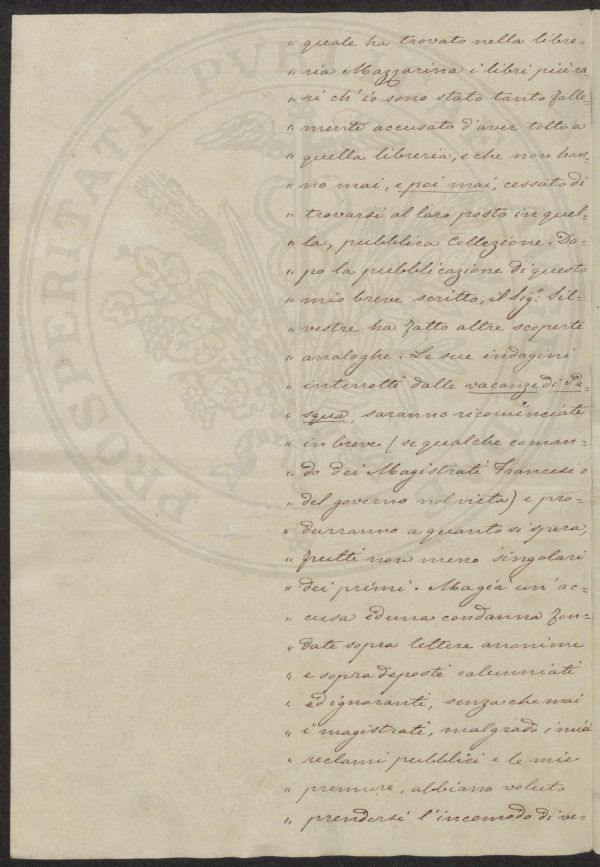 „ quale ha trovato nella libre=
„ ria Mazzarina i libri più ra=
„ ri ch'io sono stato tanto folle=
„ mente accusato d'aver tolto a
„ quella libreria, e che non han=
„ no mai, e poi mai, cessato di
„ trovarsi al loro posto in quel=
„ la, pubblica Collezione. Do=
„ po la pubblicazione di questo
„ mio breve scritto, il Sig.r Sil=
„ vestre ha fatto altre scoperte
„ analoghe. Le sue indagini
„ interrotte dalle vacanze di Pa=
„ squa, saranno ricominciate
„ in breve (se qualche coman=
„ do dei Magistrati Francesi o
„ del governo nol vieta) e pro=
„ durranno a quanto si spera,
„ frutti non meno singolari
„ dei primi. Ma già un'ac=
„ cusa ed una condanna fon=
„ date sopra lettere anonime
„ e sopra deposti calunniati
„ ed ignoranti, senza che mai
„ i magistrati, malgrado i miei
„ reclami pubblici e le mie
„ premure, abbiano voluto
„ prendersi l'incomodo di ve=
PROSPERITATI PVBL